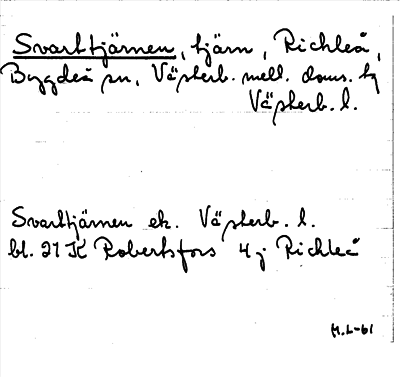 Svarttjärnen, tjärn, Richleå,
Bygdeå sn, Västerb. mell. doms. hg
Västerb. l.
Svarttjärnen ek. Västerb. l.
bl. 21 K Robertsfors 4 j Richleå
H.L-61